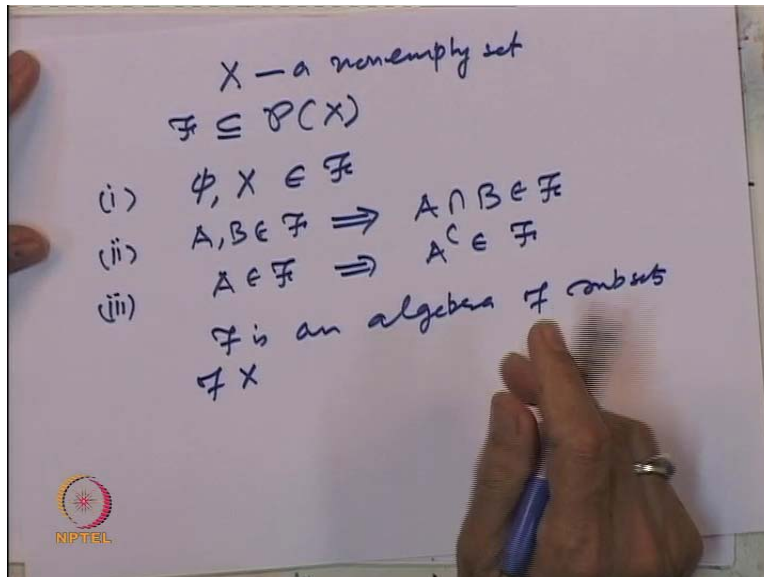 X — a nonempty set
ℱ ⊆ 𝒫(X)
(i) ϕ, X ∈ ℱ
(ii) A, B ∈ ℱ ⟹ A ∩ B ∈ ℱ
(iii) A ∈ ℱ ⟹ A^C ∈ ℱ
ℱ is an algebra of subsets
of X
NPTEL